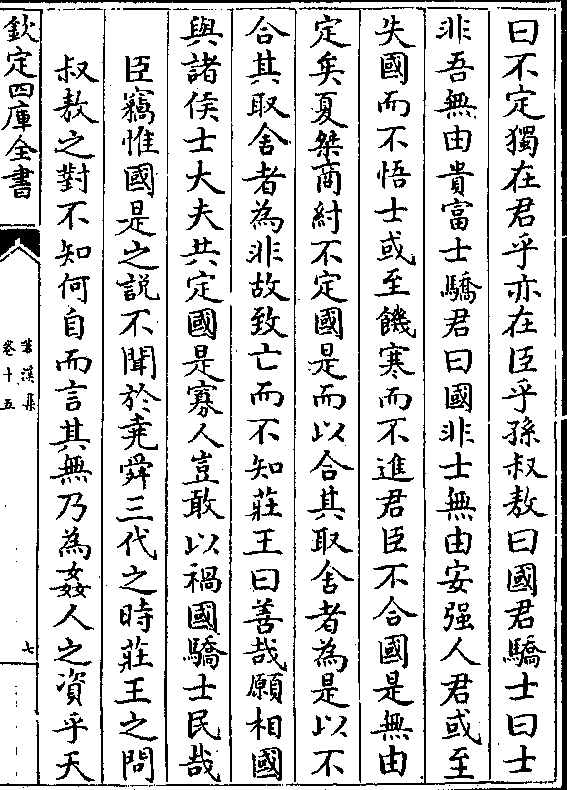 曰不定獨在君乎亦在臣乎孫叔敖曰國君驕士曰士
非吾無由貴富士驕君曰國非士無由安强人君或至
失國而不悟士或至饑寒而不進君臣不合國是無由
定矣夏桀商紂不定國是而以合其取舍者為是以不
合其取舍者為非故致亡而不知莊王曰善哉願相國
與諸侯士大夫共定國是寡人豈敢以禍國驕士民哉
臣竊惟國是之説不聞於堯舜三代之時莊王之問
叔敖之對不知何自而言其無乃為姦人之資乎天
欽定四庫全書
苕溪集
卷十五
七